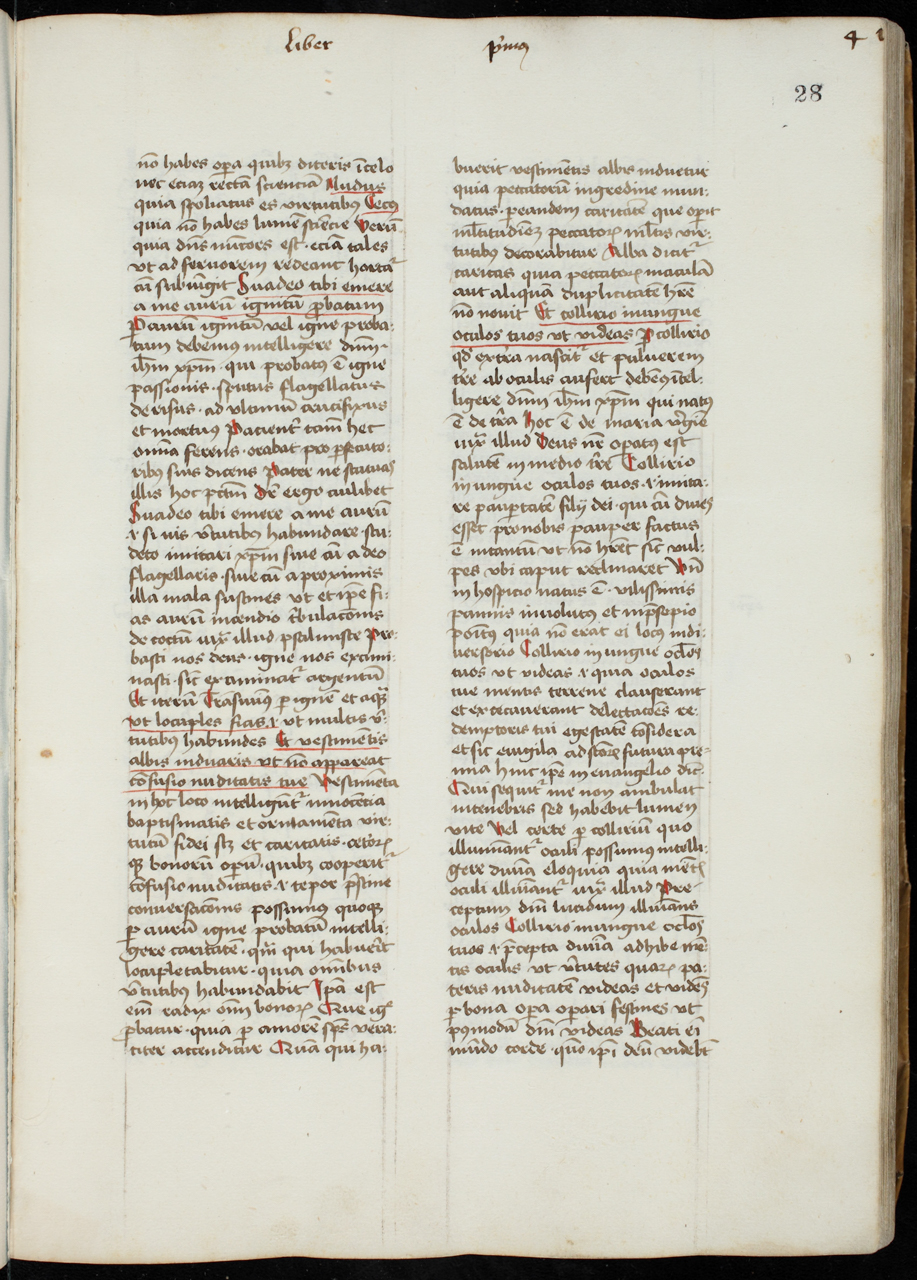 Liber pͥmus
4 1
28
nō habes oꝑa quibꝫ diteris ī celo
nec eciaꝫ rectā scienciā Nudus
quia spoliatus es virtutibus Cecꝰ
quia nō habes lumē sciēcie Verū
quia dn̄s mitors est · eciā tales
vt ad feruorem redeant hortat᷑
cū subiūgit Suadeo tibi emere
a me aurū ignitū ꝓbatum
Per aurū ignitū vel igne proba-
tum debemus intelligere dn̄m ·
ih̄m xp̄m · qui probatus ē igne
passionis · sputus flagellatus
derisus · ad vltimū crucifixus
et mortuꝰ Pacient᷑ tam̄ hec
om̄ia ferens · orabat pro ꝑsecuto-
ribꝰ suis dicens Pater ne statuas
illis hoc pctm̄ Dr̄ ergo cuilibet
Suadeo tibi emere a me aurū
⁊ si uis v̄tutibus habundare · stu-
deto imitari xp̄m siue cū a deo
flagellaris · siue cū a proximis
illa mala sustines vt et ip̄e fi-
as aurū incendio t̄bulacōnis
de coctū iux̄ illud psalmiste Pro-
basti nos deus · igne nos exami-
nasti · sic̄ examinat᷑ argentū
Et iterū Trāsiuimꝰ ꝑ ignē et aquā
vt locuples fias ⁊ vt multis v̄-
tutibꝰ habundes Et vestimētis
albis induaris vt nō appareat
cōfusio nuditatis tue Vestimēta
in hoc loco intelligūt᷑ innocētia
baptismatis et ornamēta vir-
tutū fidei sꝫ et caritatis · cetoꝝ
qꝫ bonorū opū · quibꝫ cooperit᷑
cōfusio nuditatis ⁊ tepor p̄stine
conuersacōnis possumus quoqꝫ
ꝑ aurū igne probatū intelli-
gere caritatē · qm̄ qui habuerit
locupletabitur · quia om̄ibus
v̄tutibus habundabit Ipā est
em̄ radix om̄ bonoꝝ Que igͤ
ꝓbatur · quia ꝑ amorē sp̄s vera-
citer accenditur Quā qui ha-
buerit vestimētis albis induetur
quia peccatorū ingredine mun-
datus · ꝑ eandem caritatē que oꝑit
ml̄titudiēꝫ peccatoꝝ ml̄tis vir-
tutibꝰ decorabitur Alba dicit᷑
caritas quia peccatoꝝ maculā
aut aliquā duplicitatē hr̄e
nō nouit Et collirio inungue
oculos tuos vt videas Per collirio
qd̄ ex tr̄a nascit᷑ et puluerem
tr̄e ab oculis aufert debemꝰ ītel-
ligere dn̄m ih̄m xp̄m qui natꝰ
ē de tr̄a hoc ē de maria v̄gīe
iux̄ illud Deus nr̄ oꝑatus est
salutē in medio tr̄e Collirio
in ungue oculos tuos · ⁊ imita-
re pauꝑtatē filij dei · qui cū diues
esset ꝓ nobis pauper factus
ē intantū vt nō hr̄et sic̄ vul-
pes vbi caput reclinaret Vn̄
in hospicio natus ē · vilissimis
pannis inuolutꝰ et in p̄sepio
poitꝰ quia nō erat ei locꝰ in di-
uersorio Collirio in ungue oclos
tuos vt videas ⁊ quia oculos
tue mentis terrene clauserant
et excecauerant delectacōes re-
demptoris tui egestatē cōsidera
et sic euigila ad stōꝝ futura pre-
mia hinc ip̄e in euangelio dic̄
Qui sequit᷑ me non ambulat
in tenebris sed habebit lumen
vite Vel certe ꝑ colliriū quo
illuminant᷑ oculi possumus intelli-
gere diuīa eloquia quia mēt̄
oculi illuīant᷑ iux̄ illud Pre-
ceptum dn̄i lucidum illuīans
oculos Collirio inungue oclos
tuos ⁊ p̄cepta diuīa adhibe mē-
tis oculis vt v̄tutes quaꝝ pa-
teris nuditatē videas et vidēs
ꝑ bona oꝑa oꝑari festines vt
pꝰmodū dm̄ videas Beati ei
mūdo corde · qm̄o ip̄i deū videbt̄